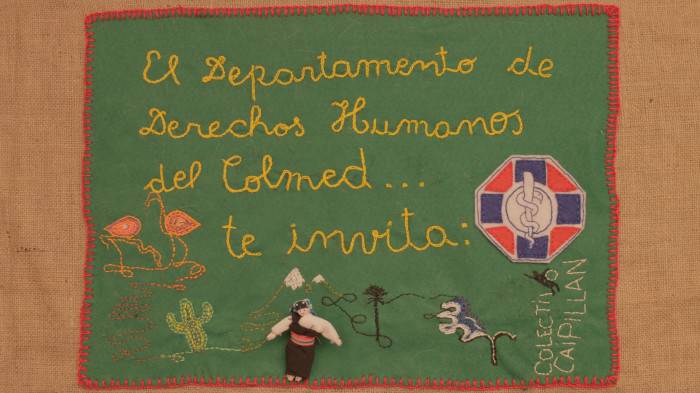 El Departamento de
Derechos Humanos
del Colmed...
te invita:
COLECTIVO
CAIPILLAN